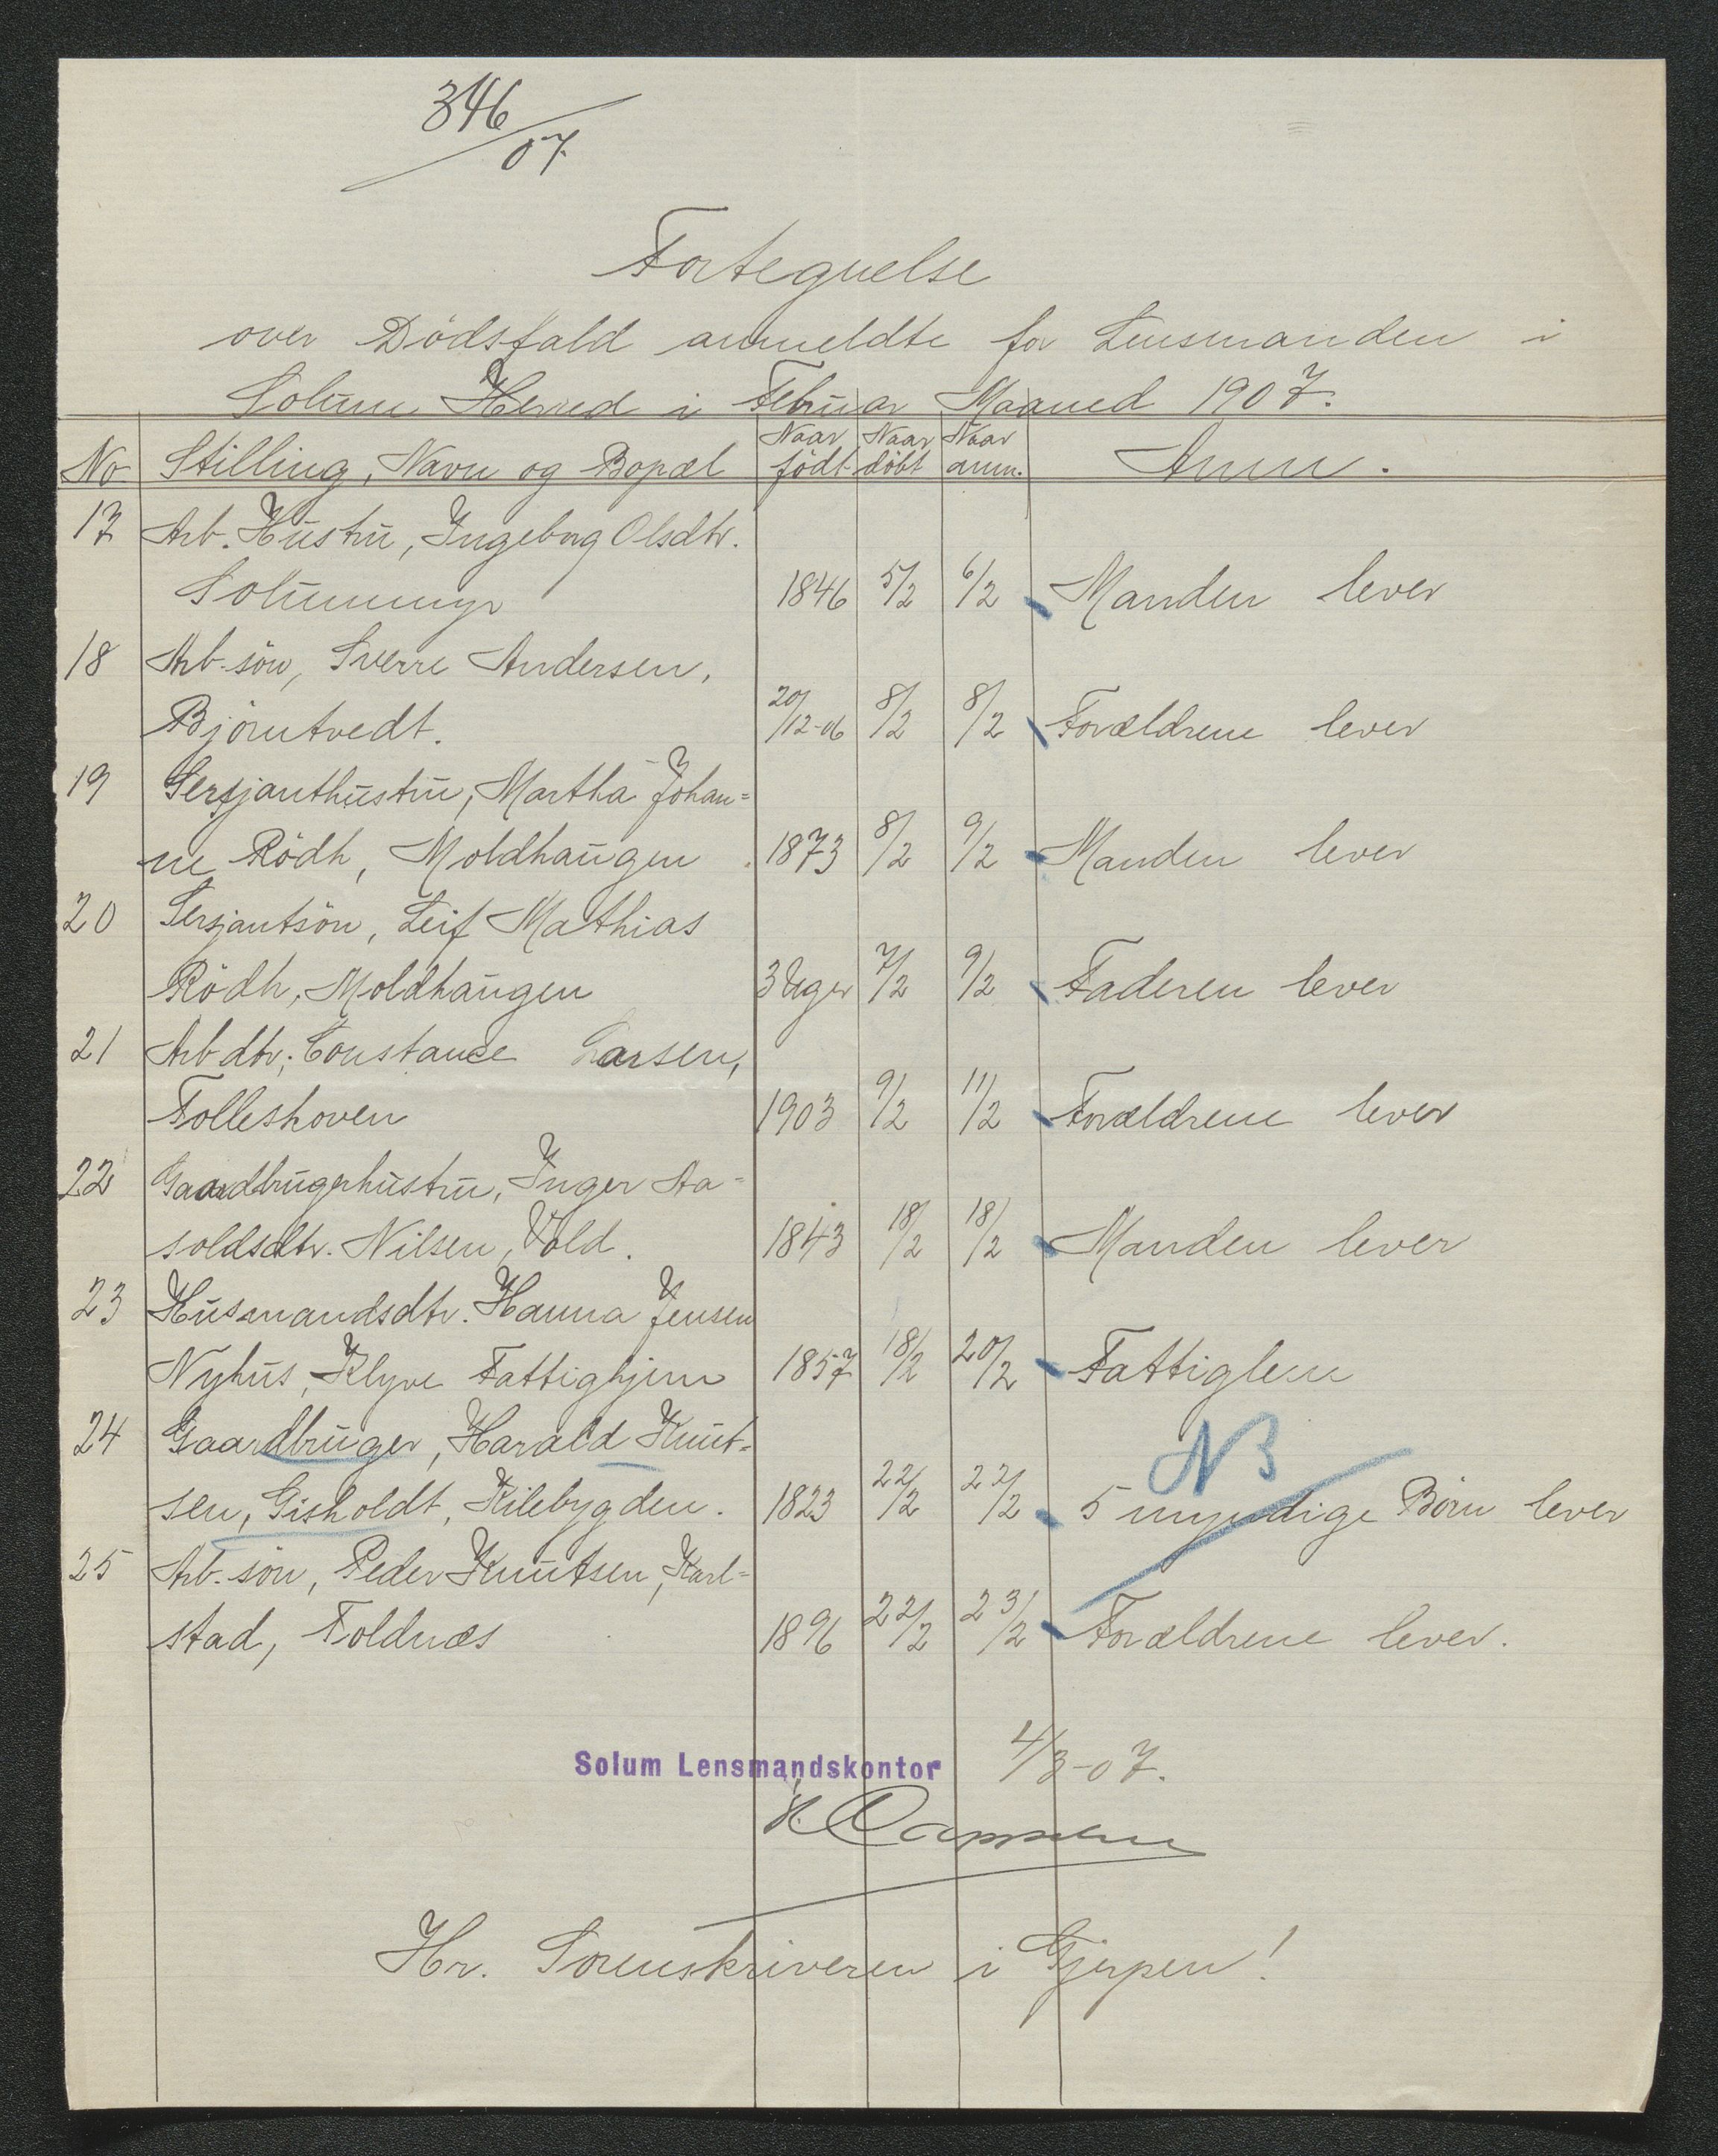 346/07
Fortegnelse
over Dödsfald anmeldte for Lensmanden i
Solum Herred i Februar Maaned 1907.
No Stilling, Navn og Bopæl Naar födt Naar döbt Naar anm. Anm.
17 Arb. Hustru, Ingeborg Olsdtr.
Solummyr 1846 5/2 6/2 Manden lever
18 Arb. sön, Sverre Andersen,
Björntvedt. 20/12-06 8/2 8/2 Forældrene lever
19 Sersjanthustru, Martha Johan=
ne Rödh, Moldhaugen 1873 8/2 9/2 Manden lever
20 Sersjantsön, Leif Mathias
Rödh, Moldhaugen 3 Uger 7/2 9/2 Faderen lever
21 Arb dtr. Constance Larsen,
Folleshoven 1903 9/2 11/2 Forældrene lever
22 Gaardbrugerhustru, Inger Aa=
soldsdtr. Nilsen, Vold. 1843 18/2 18/2 Manden lever
23 Husmandsdtr. Hanna Jensen
Nyhus, Klyve Fattighjem 1857 18/2 20/2 Fattiglem
24 Gaardbruger, Harald Knut= NB
sen, Gisholdt, Kilebygden. 1823 22/2 22/2 5 myndige Börn lever
25 Arb. sön, Peder Knutsen, Karl=
stad, Foldnæs 1896 22/2 23/2 Forældrene lever.
Solum Lensmandskontor 4/3-07.
Hr. Sorenskriveren i Gjerpen!